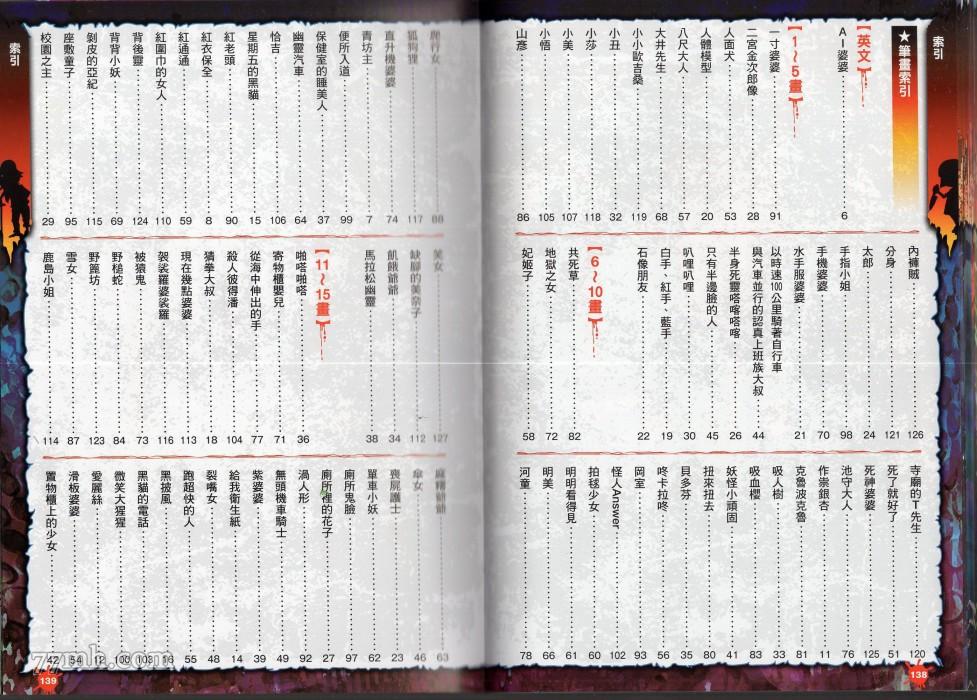 索引
★筆畫索引
【英文】
AI婆婆 6
【1~5畫】
一寸婆婆 91
二宮金次郎像 28
人面犬 53
人體模型 20
八尺大人 57
大井先生 68
小小歐吉桑 119
小丑 32
小莎 118
小美 107
小悟 105
山彥 86
內褲賊 126
分身 121
太郎 24
手指小姐 98
手機婆婆 70
水手服婆婆 21
以時速100公里騎著自行車
與汽車並行的認真上班族大叔 44
半身死靈喀嗒喀嗒 26
只有半邊臉的人 45
叭哩叭哩 30
白手、紅手、藍手 19
石像朋友 22
【6~10畫】
共死草 82
地獄之女 72
妃姬子 58
寺廟的T先生 120
死了就好了 51
死神婆婆 125
池守大人 76
作祟銀杏 11
克魯波克魯 81
吸人樹 33
吸血櫻 83
妖怪小頑固 41
扭來扭去 80
貝多芬 35
咚卡拉咚 56
岡室 93
怪人Answer 102
拍毬少女 60
明明看得見 61
明美 66
河童 78
138
索引
爬行女 88
狐狗狸 117
直升機婆婆 74
青坊主 7
便所入道 99
保健室的睡美人 37
幽靈汽車 64
恰吉 106
星期五的黑貓 15
紅老頭 90
紅衣保全 8
紅通通 59
紅圍巾的女人 110
背後靈 124
背背小妖 69
剝皮的亞紀 115
座敷童子 95
校園之主 29
笑女 127
缺腳的美奈子 112
飢餓爺爺 34
馬拉松幽靈 38
【11~15畫】
啪嗒啪嗒 36
寄物櫃嬰兒 71
從海中伸出的手 77
殺人彼得潘 104
猜拳大叔 18
現在幾點婆婆 113
袈裟羅婆裟羅 116
被猿鬼 73
野槌蛇 84
野篦坊 123
雪女 87
鹿島小姐 114
麻糬爺爺 63
傘女 46
喪屍護士 23
單車小妖 62
廁所鬼臉 97
廁所裡的花子 27
渦人形 92
無頭機車騎士 49
紫婆婆 39
給我衛生紙 14
裂嘴女 48
跑超快的人 55
黑披風 16
黑貓的電話 103
微笑大猩猩 100
愛麗絲 12
滑板婆婆 54
置物櫃上的少女 42
139